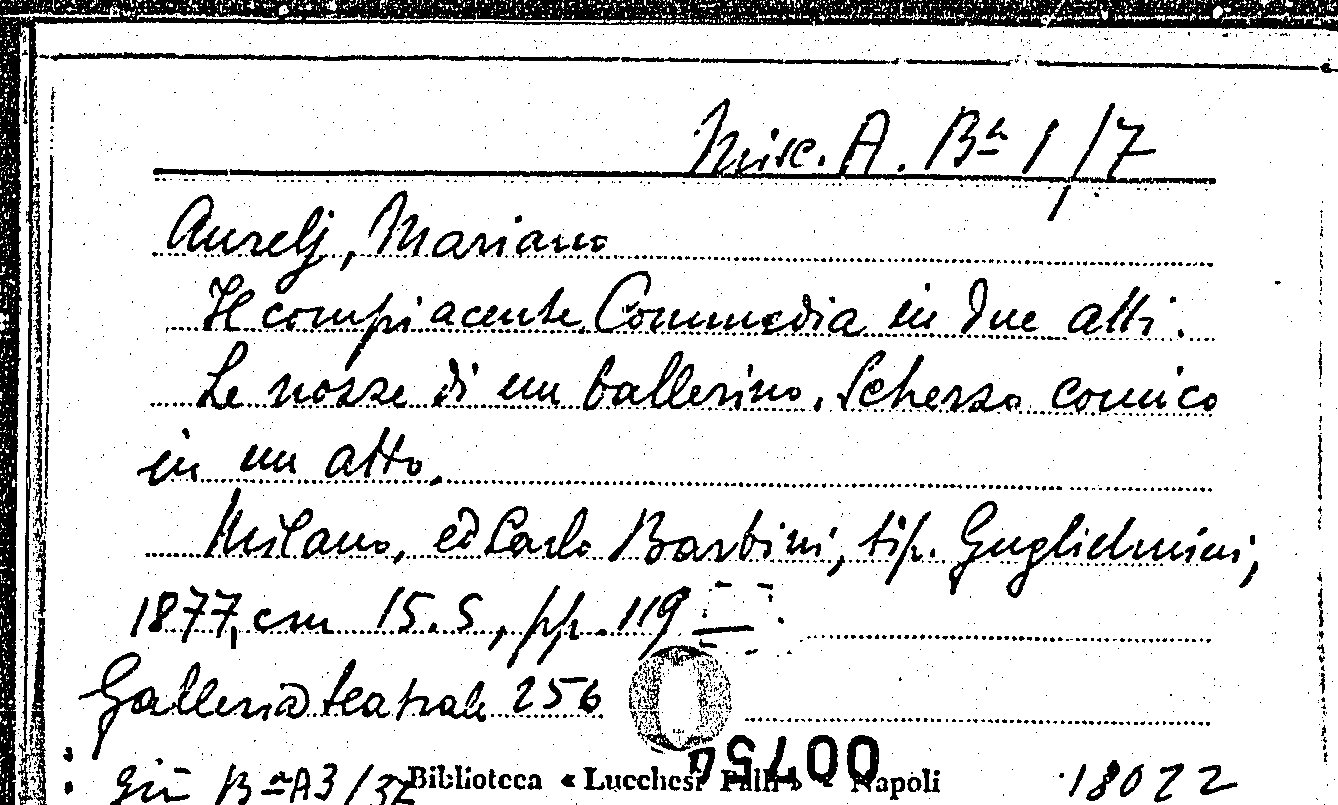 Misc. A. Bª 1/7
Aurelj, Mariano
Il compiacente. Commedia in due atti.
Le nozze di un ballerino. Scherzo comico
in un atto.
Milano, ed Carlo Barbini, tip. Guglielmini,
1877, cm 15.5, pp. 119
Galleria teatrale 256
00754
già Bª A3/37 Biblioteca « Lucchesi Palli » Napoli 18022